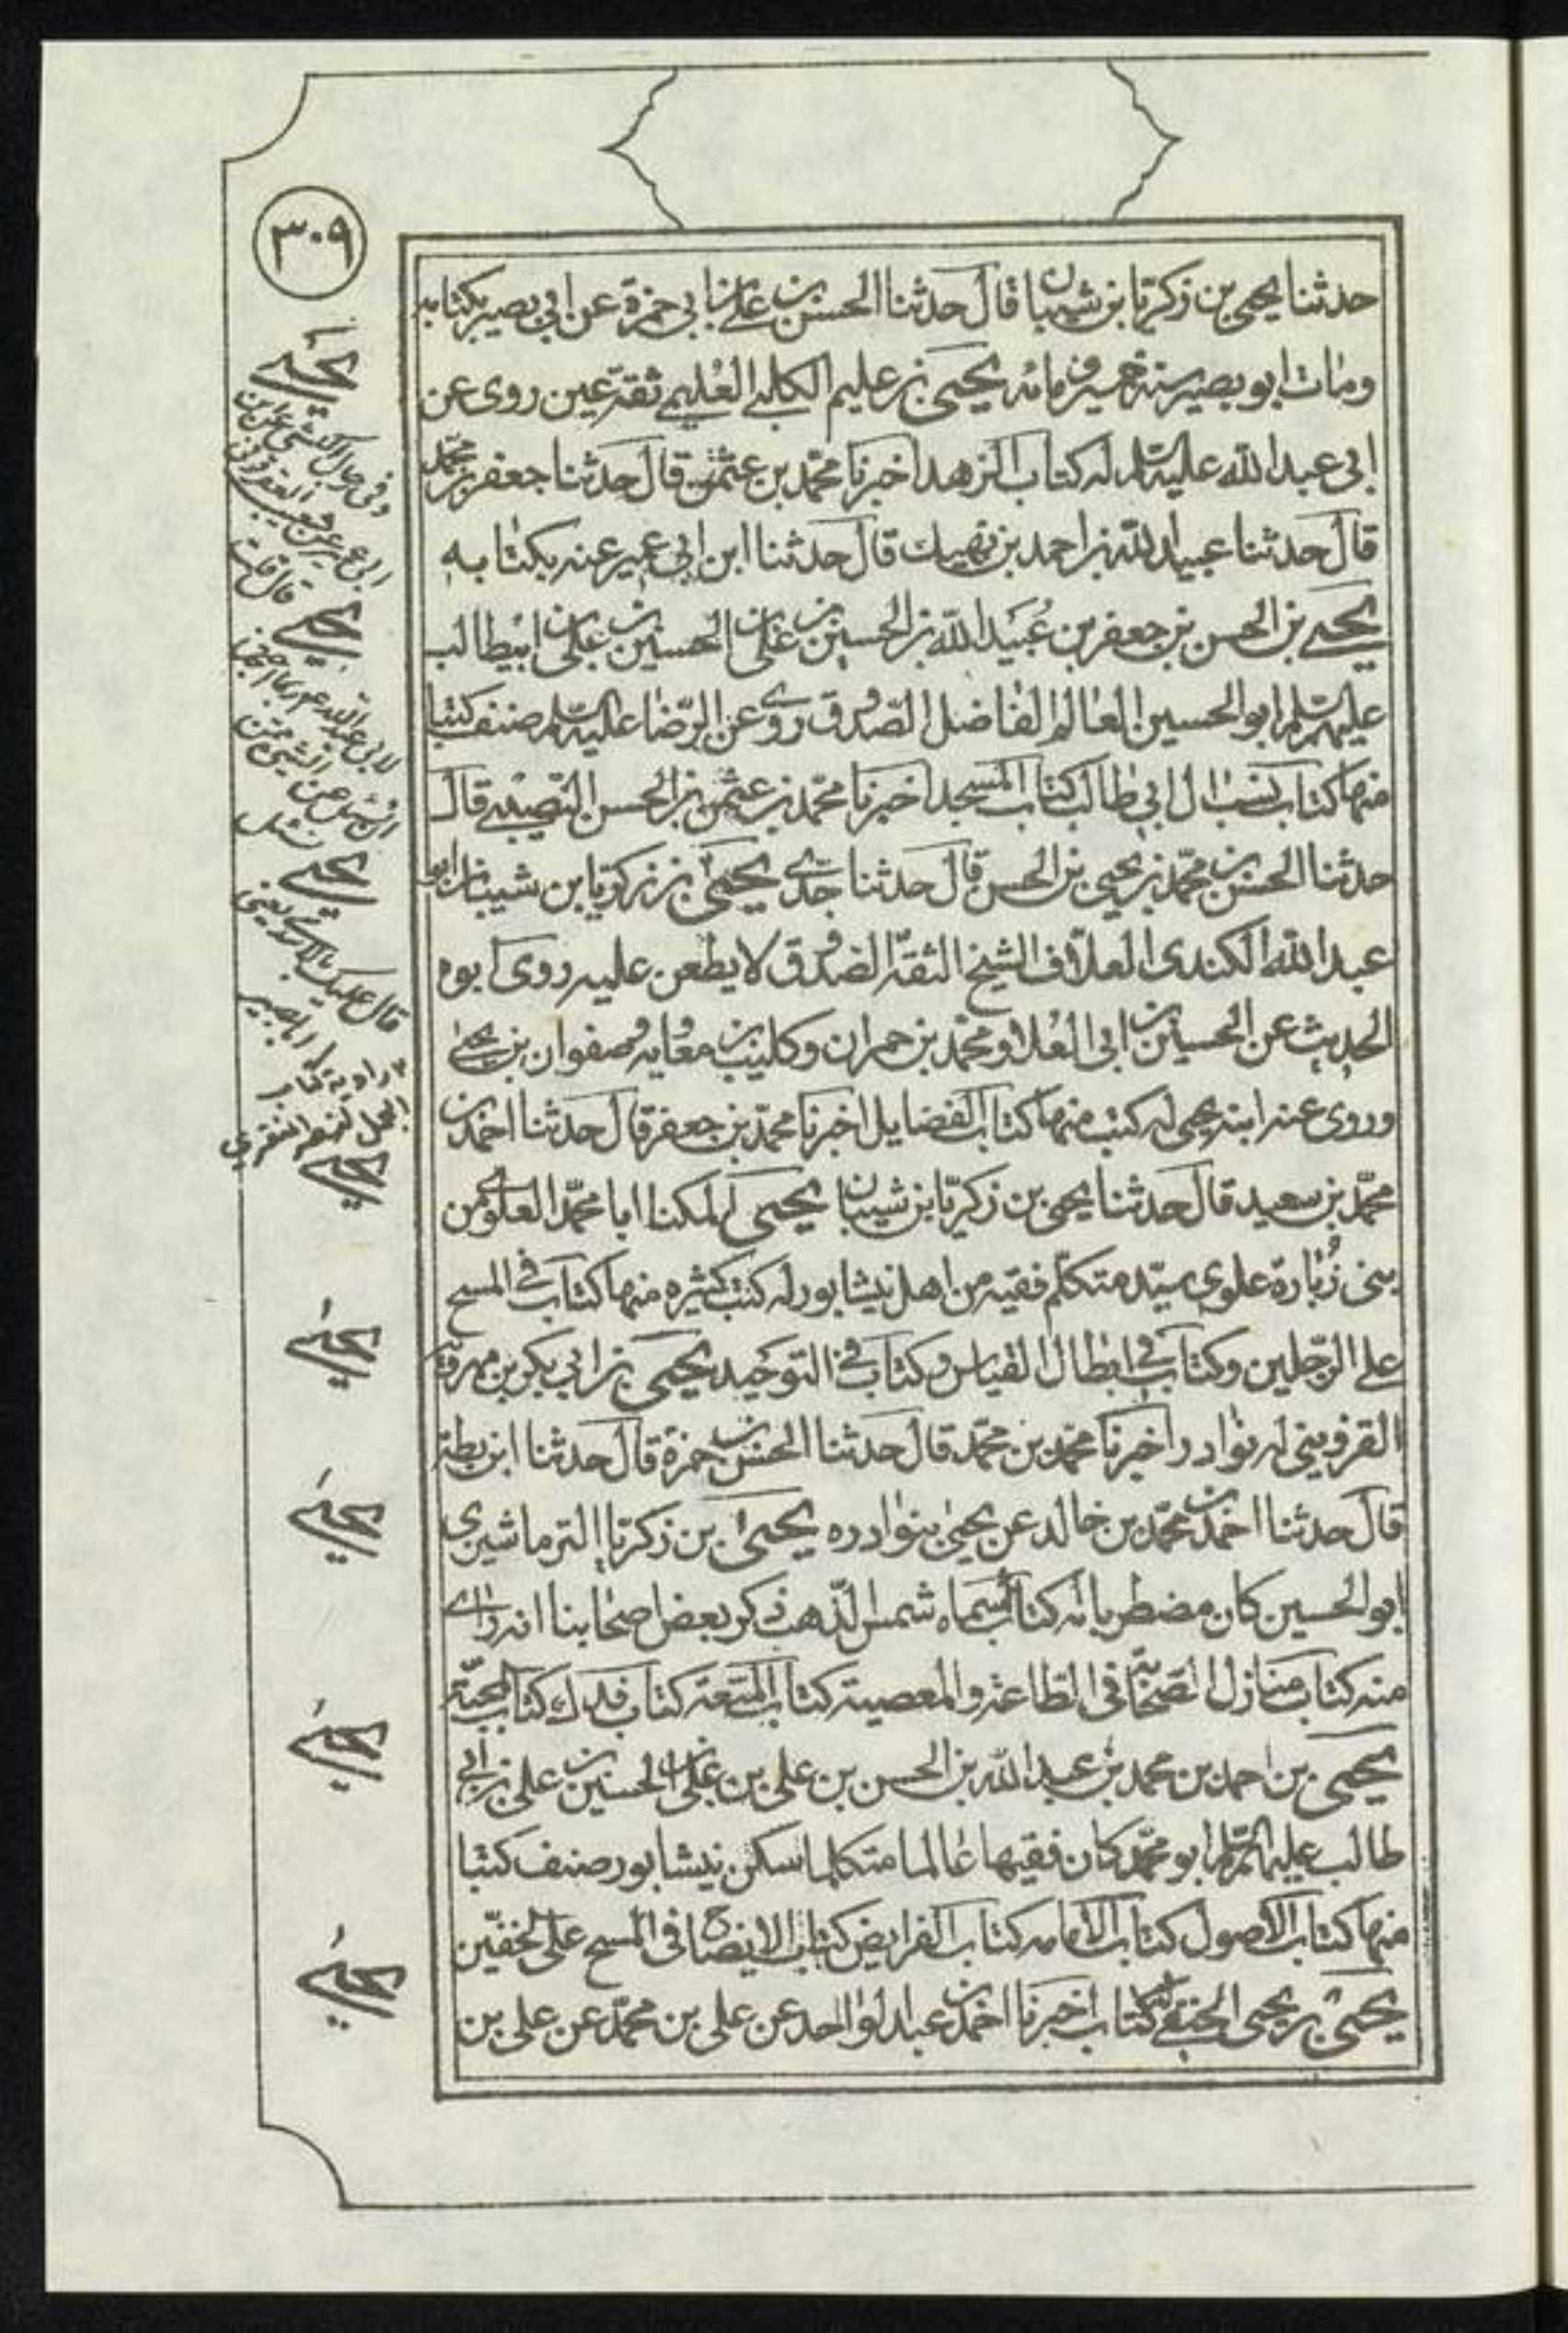 ٣٠٩
حدثنا يحيى بن زكريا بن شيبان قال حدثنا الحسن بن علي بن ابي حمزة عن ابي بصير بكتابه
ومات ابو بصير سنة خمسين ومائة يحيى بن عليم الكلبي العليمي ثقة عين روى عن
ابي عبد الله عليه السلام له كتاب الزهد اخبرنا محمد بن عثمن قال حدثنا جعفر بن محمد
قال حدثنا عبيد الله بن احمد بن نهيك قال حدثنا ابن ابي عمير عنه بكتابه
يحيى بن الحسن بن جعفر بن عبيد الله بن الحسين بن علي بن الحسين بن علي بن ابيطالب
عليهم السلم ابو الحسين العالم الفاضل الصدوق روى عن الرضا عليه السلم صنف كتبا
منها كتاب نسب ال ابي طالب كتاب المسجد اخبرنا محمد بن عثمن بن الحسن النصيبي قال
حدثنا الحسن بن محمد بن يحيى بن الحسن قال حدثنا جدي يحيى بن زكريا بن شيبان ابو
عبد الله الكندي العلاف الشيخ الثقة الصدوق لا يطعن عليه روى ابوه
الحديث عن الحسين بن ابي العلا ومحمد بن حمران وكليب بن معاوية وصفوان بن يحيى
وروى عنه ابنه يحيى له كتب منها كتاب الفضايل اخبرنا محمد بن جعفر قال حدثنا احمد بن
محمد بن سعيد قال حدثنا يحيى بن زكريا بن شيبان يحيى المكنا ابا محمد العلوي من
بني زبارة علوي سيد متكلم فقيه من اهل نيشابور له كتب كثيره منها كتاب في المسح
على الرجلين وكتاب في ابطال القياس وكتاب في التوحيد يحيى بن ابي بكر بن مهرويه
القزويني له نوادر اخبرنا محمد بن محمد قال حدثنا الحسن بن حمزة قال حدثنا ابن بطة
قال حدثنا احمد بن محمد بن خالد عن يحيى بنوادره يحيى بن زكريا الترماشيري
ابو الحسين كان مضطربا له كتاب سماه شمس الذهب ذكر بعض اصحابنا انه راى
منه كتاب منازل الصحابة في الطاعة والمعصية كتاب المتعة كتاب فدك كتاب المحبة
يحيى بن احمد بن محمد بن عبد الله بن الحسن بن علي بن علي بن الحسين بن علي بن ابي
طالب عليهم السلم ابو محمد كان فقيها عالما متكلما سكن نيشابور صنف كتبا
منها كتاب الاصول كتاب الامامه كتاب الفرايض كتاب الايضاح في المسح على الخفين
يحيى بن يحيى الحنفي له كتاب اخبرنا احمد بن عبد الواحد عن علي بن محمد عن علي بن
يحيى
وفي رجال الكشي عن
ابي عمير عن شعيب العقرقوفي
قال قلت
يحيى
لابي عبد الله
يحيى
قال عليك بالاسدي يعني
ابا بصير
يحيى
يحيى
يحيى
يحيى
يحيى